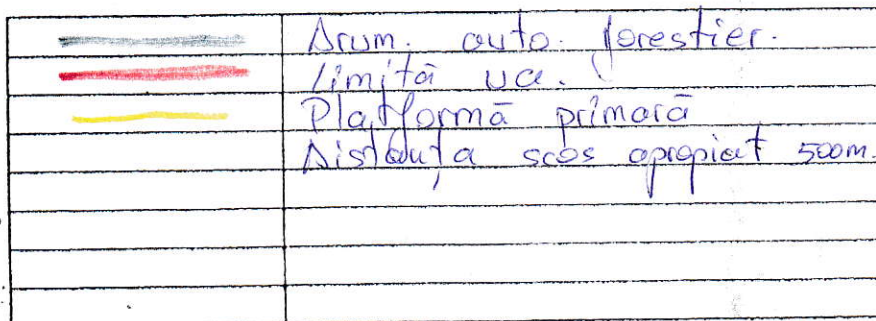 Drum. auto. forestier.
limită ua.
Platformă primară
Distanța scos apropiat 500m.